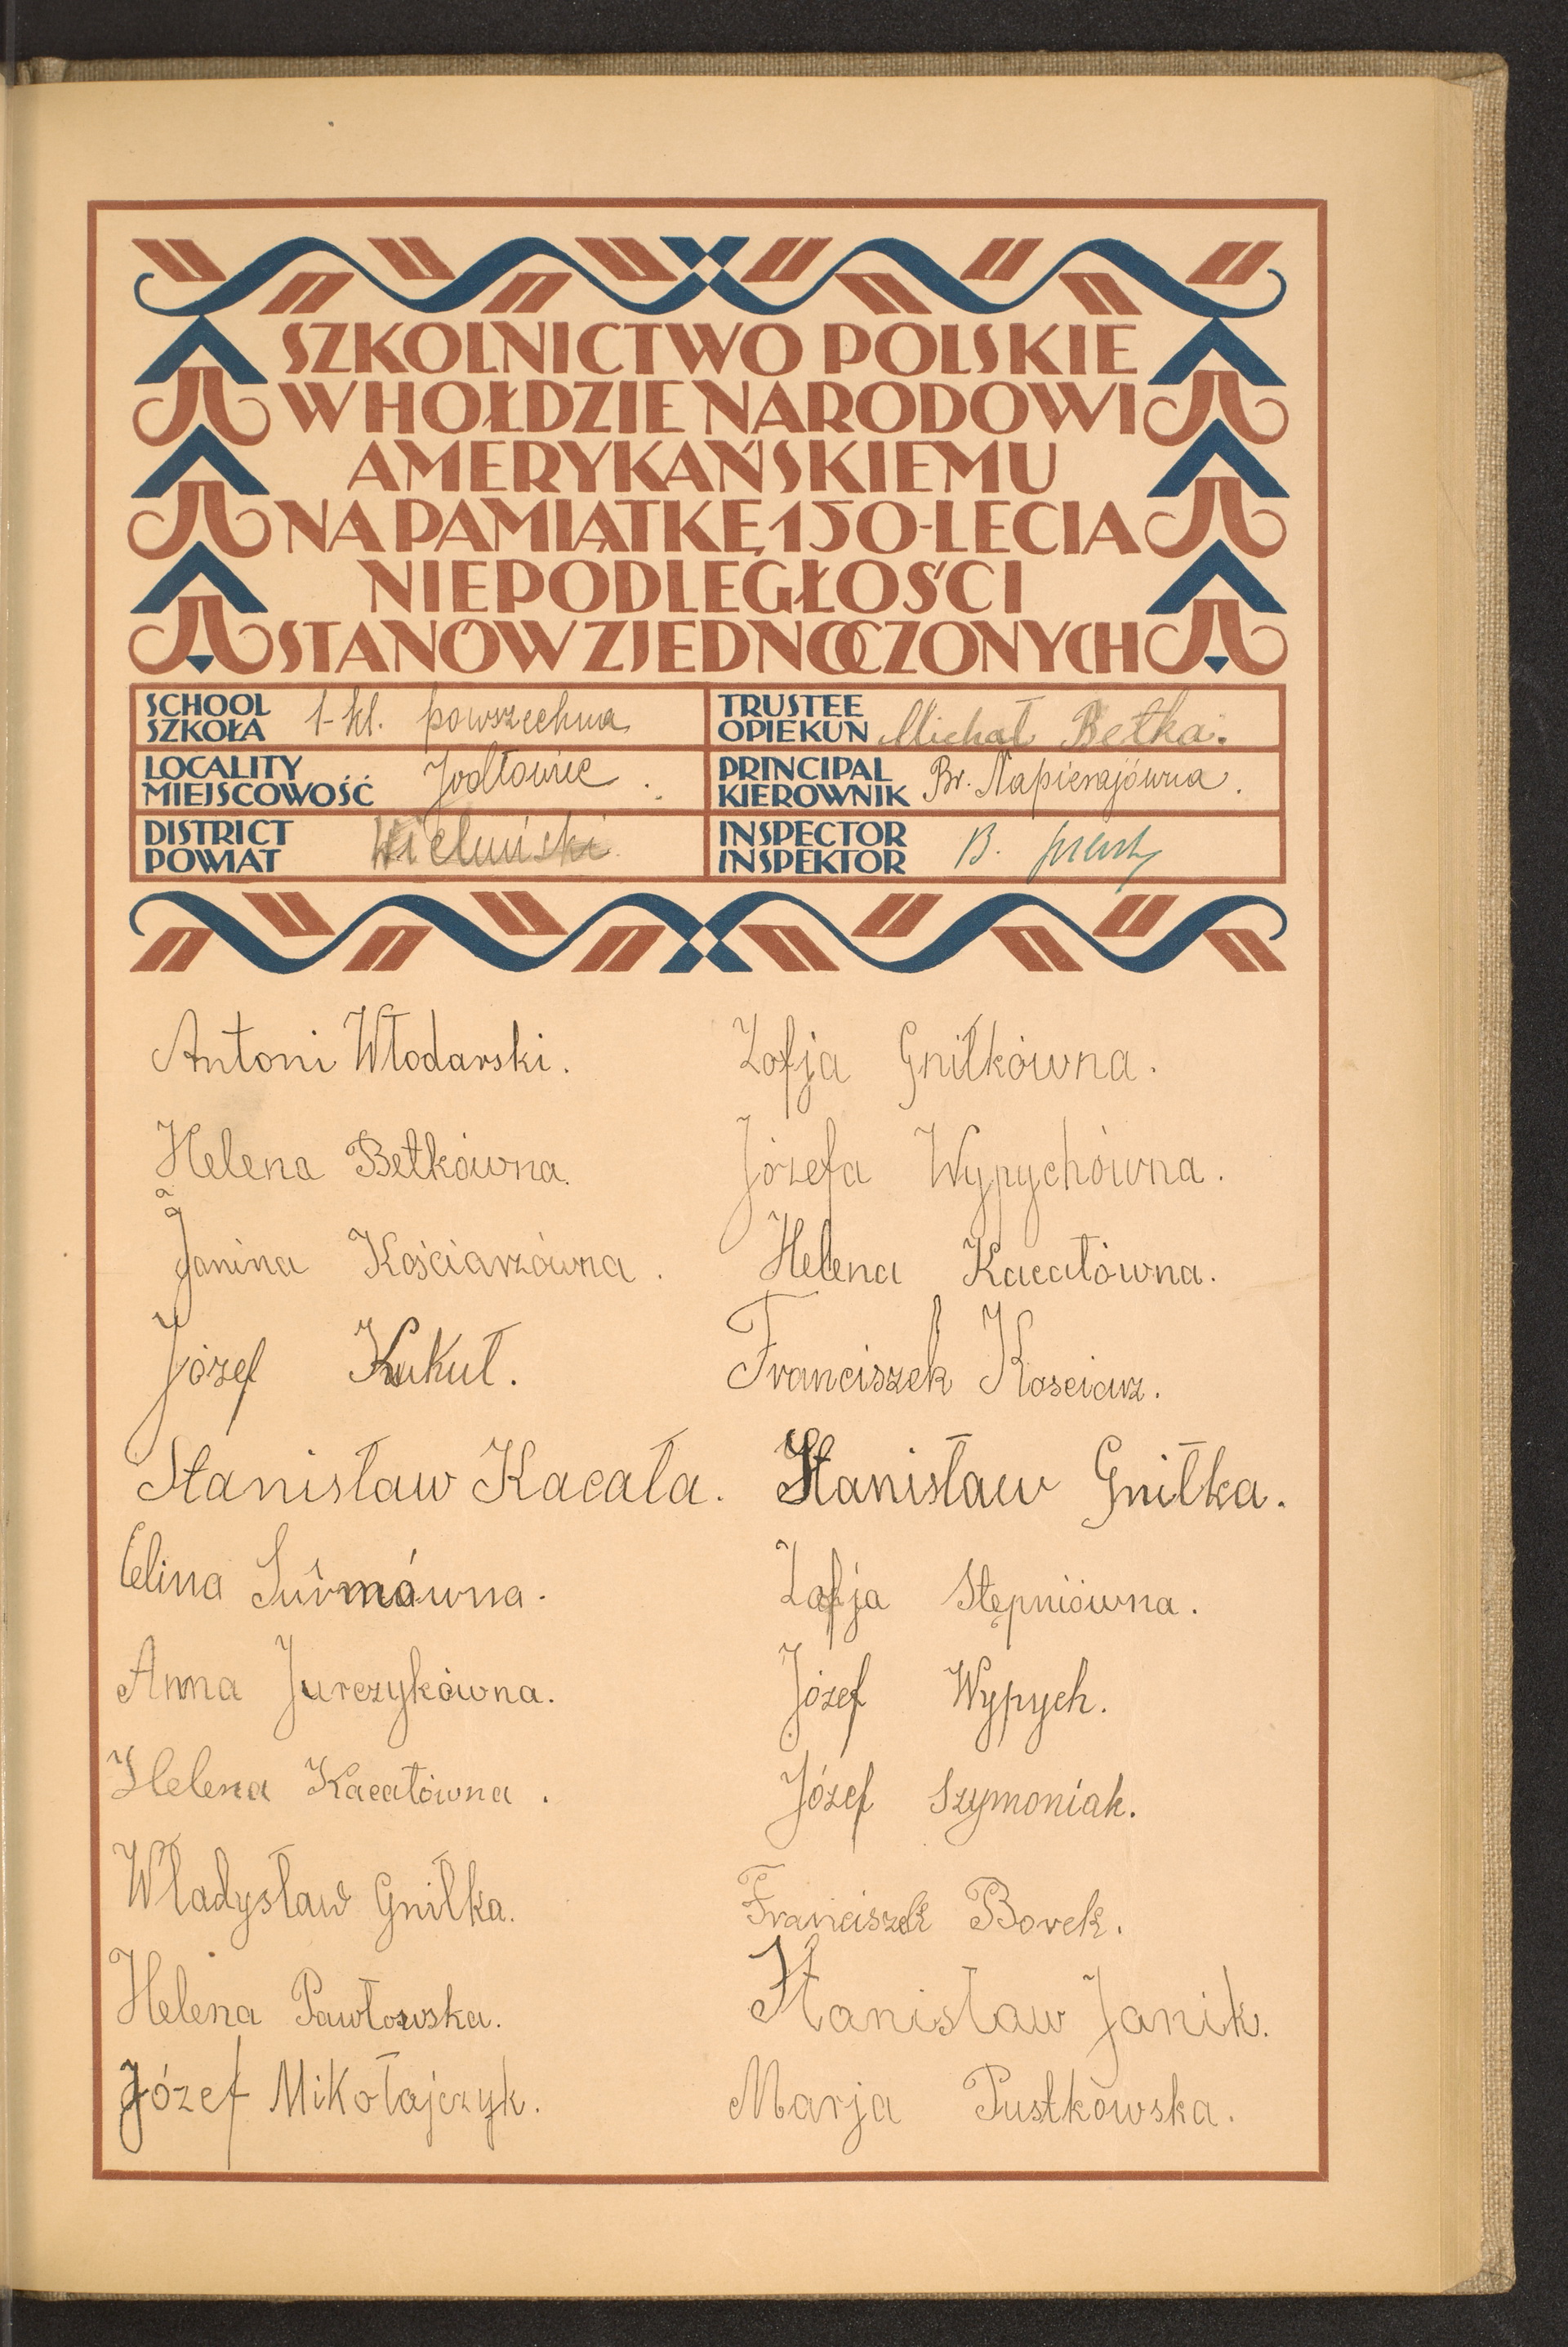 SZKOLNICTWO POLSKIE
W HOŁDZIE NARODOWI
AMERYKAŃSKIEMU
NA PAMIĄTKĘ 150-LECIA
NIEPODLEGŁOŚCI
STANÓW ZJEDNOCZONYCH
SCHOOL
SZKOŁA 1-kl. powszechna
TRUSTEE
OPIEKUN Michał Bełka.
LOCALITY
MIEJSCOWOŚĆ Jodłowiec.
PRINCIPAL
KIEROWNIK Br. Napierajówna.
DISTRICT
POWIAT Wieluński
INSPECTOR
INSPEKTOR B.
Antoni Włodarski.
Helena Bełkówna.
Janina Kościarzówna.
Józef Kukuł.
Stanisław Kacała.
Celina
Anna Jurczykówna.
Helena Kacałówna.
Władysław Gniłka.
Helena Pawłowska.
Józef Mikołajczyk.
Zofja Gniłkówna.
Józefa Wypychówna.
Helena Kacałówna.
Franciszek Kosciarz.
Stanisław Gniłka.
Zofja Stępniówna.
Józef Wypych.
Józef Szymoniak.
Franciszek Borek.
Stanisław Janik.
Marja Pustkowska.